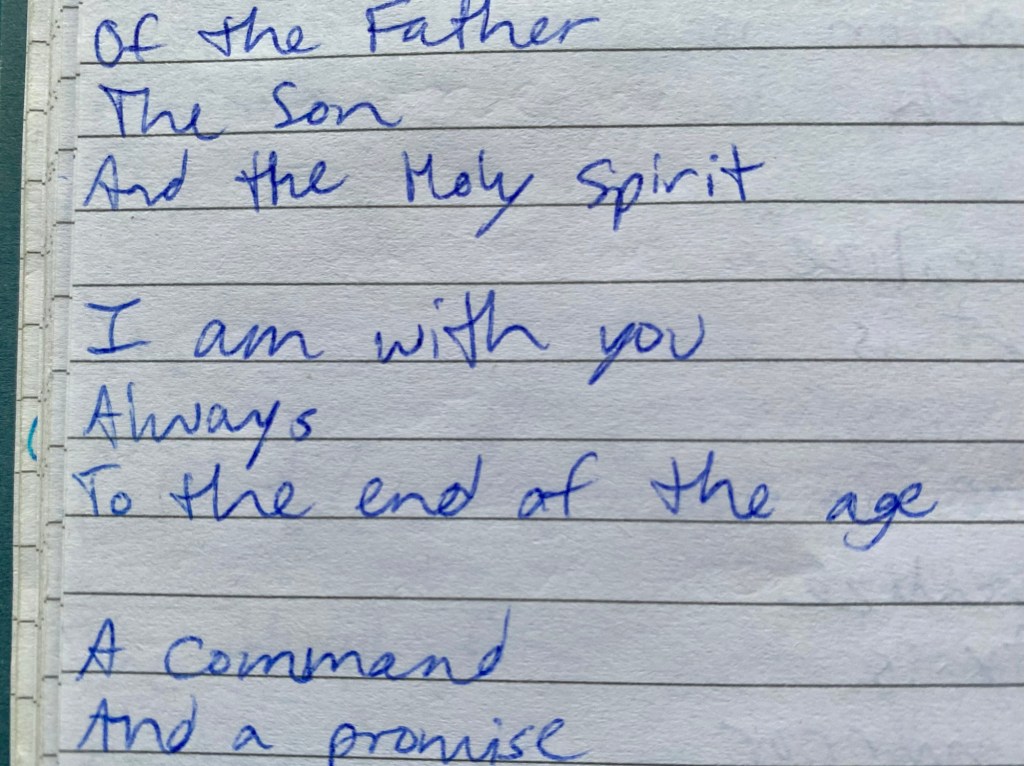 Of the Father
The Son
And the Holy Spirit
I am with you
Always
To the end of the age
A command
And a promise